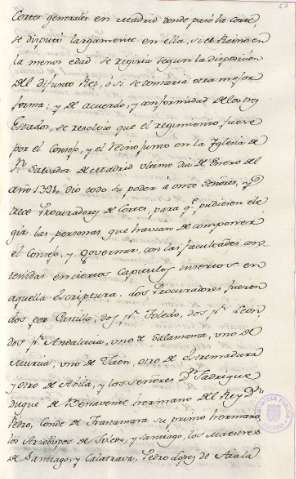 Cortes generales en Madrid donde presto la corte,
se disputó largamente en ella, si el Reino en
la menor edad se regiria segun la disposicion
del difunto Rey, ó si se tomaria otra mejor
forma; y de acuerdo, y conformidad de los tres
Estados, se resolvio que el regimiento fuese
por el Consejo, y el Reino junto en la Iglesia de
Sn. Salvador de Madrid ultimo dia de Enero del
año 1391. dio todo su poder a once Señores, y
trece Procuradores de Cortes, para qe. pudiesen ele
gir las personas que havian de componer
el Consejo, y Governar, con las facultades con
tenidas en ciertos Capitulos insertos en
aquella escriptura. dos Procuradores fueron
dos por Castilla, dos pr. Toledo, dos pr. Leon
dos pr. Andalucia, uno de Salamanca, uno de
Murcia, uno de Jaen, otro de Estremadura
y otro de Avila, y los señores Dn. Fadrique
Duque de Benavente hermano del Rey Dn.
Pedro, Conde de Transtamara su primo hermano,
los Arzobispos de Toledo, y Santiago, los Maestres
de Santiago, y Calatrava, Pedro Lopez de Aiala